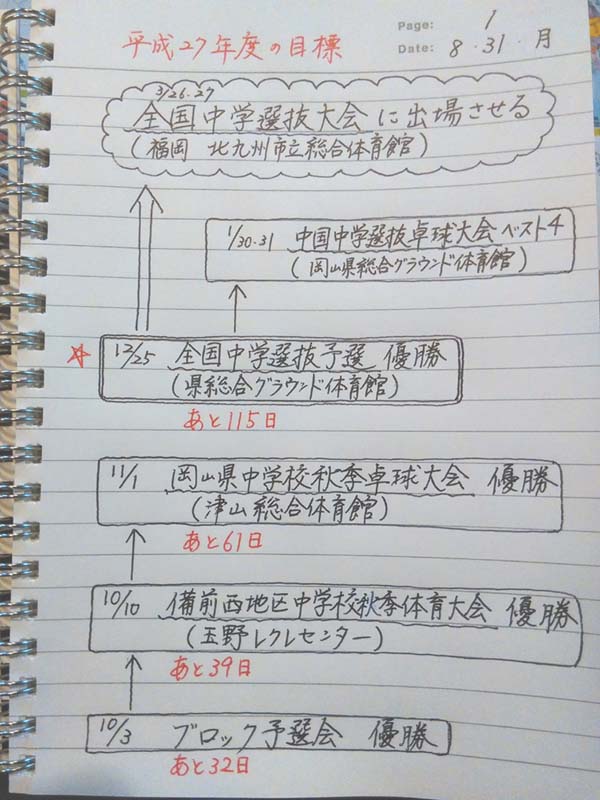 Page: 1
平成27年度の目標
Date: 8・31・月
3/26.27
全国中学選抜大会に出場させる
(福岡 北九州市立総合体育館)
1/30・31 中国中学選抜卓球大会ベスト4
(岡山県総合グラウンド体育館)
☆ 12/25 全国中学選抜予選 優勝
(県総合グラウンド体育館)
あと115日
11/1 岡山県中学校秋季卓球大会 優勝
(津山総合体育館)
あと61日
10/10 備前西地区中学校秋季体育大会 優勝
(玉野レクレセンター)
あと39日
10/3 ブロック予選会 優勝
あと32日